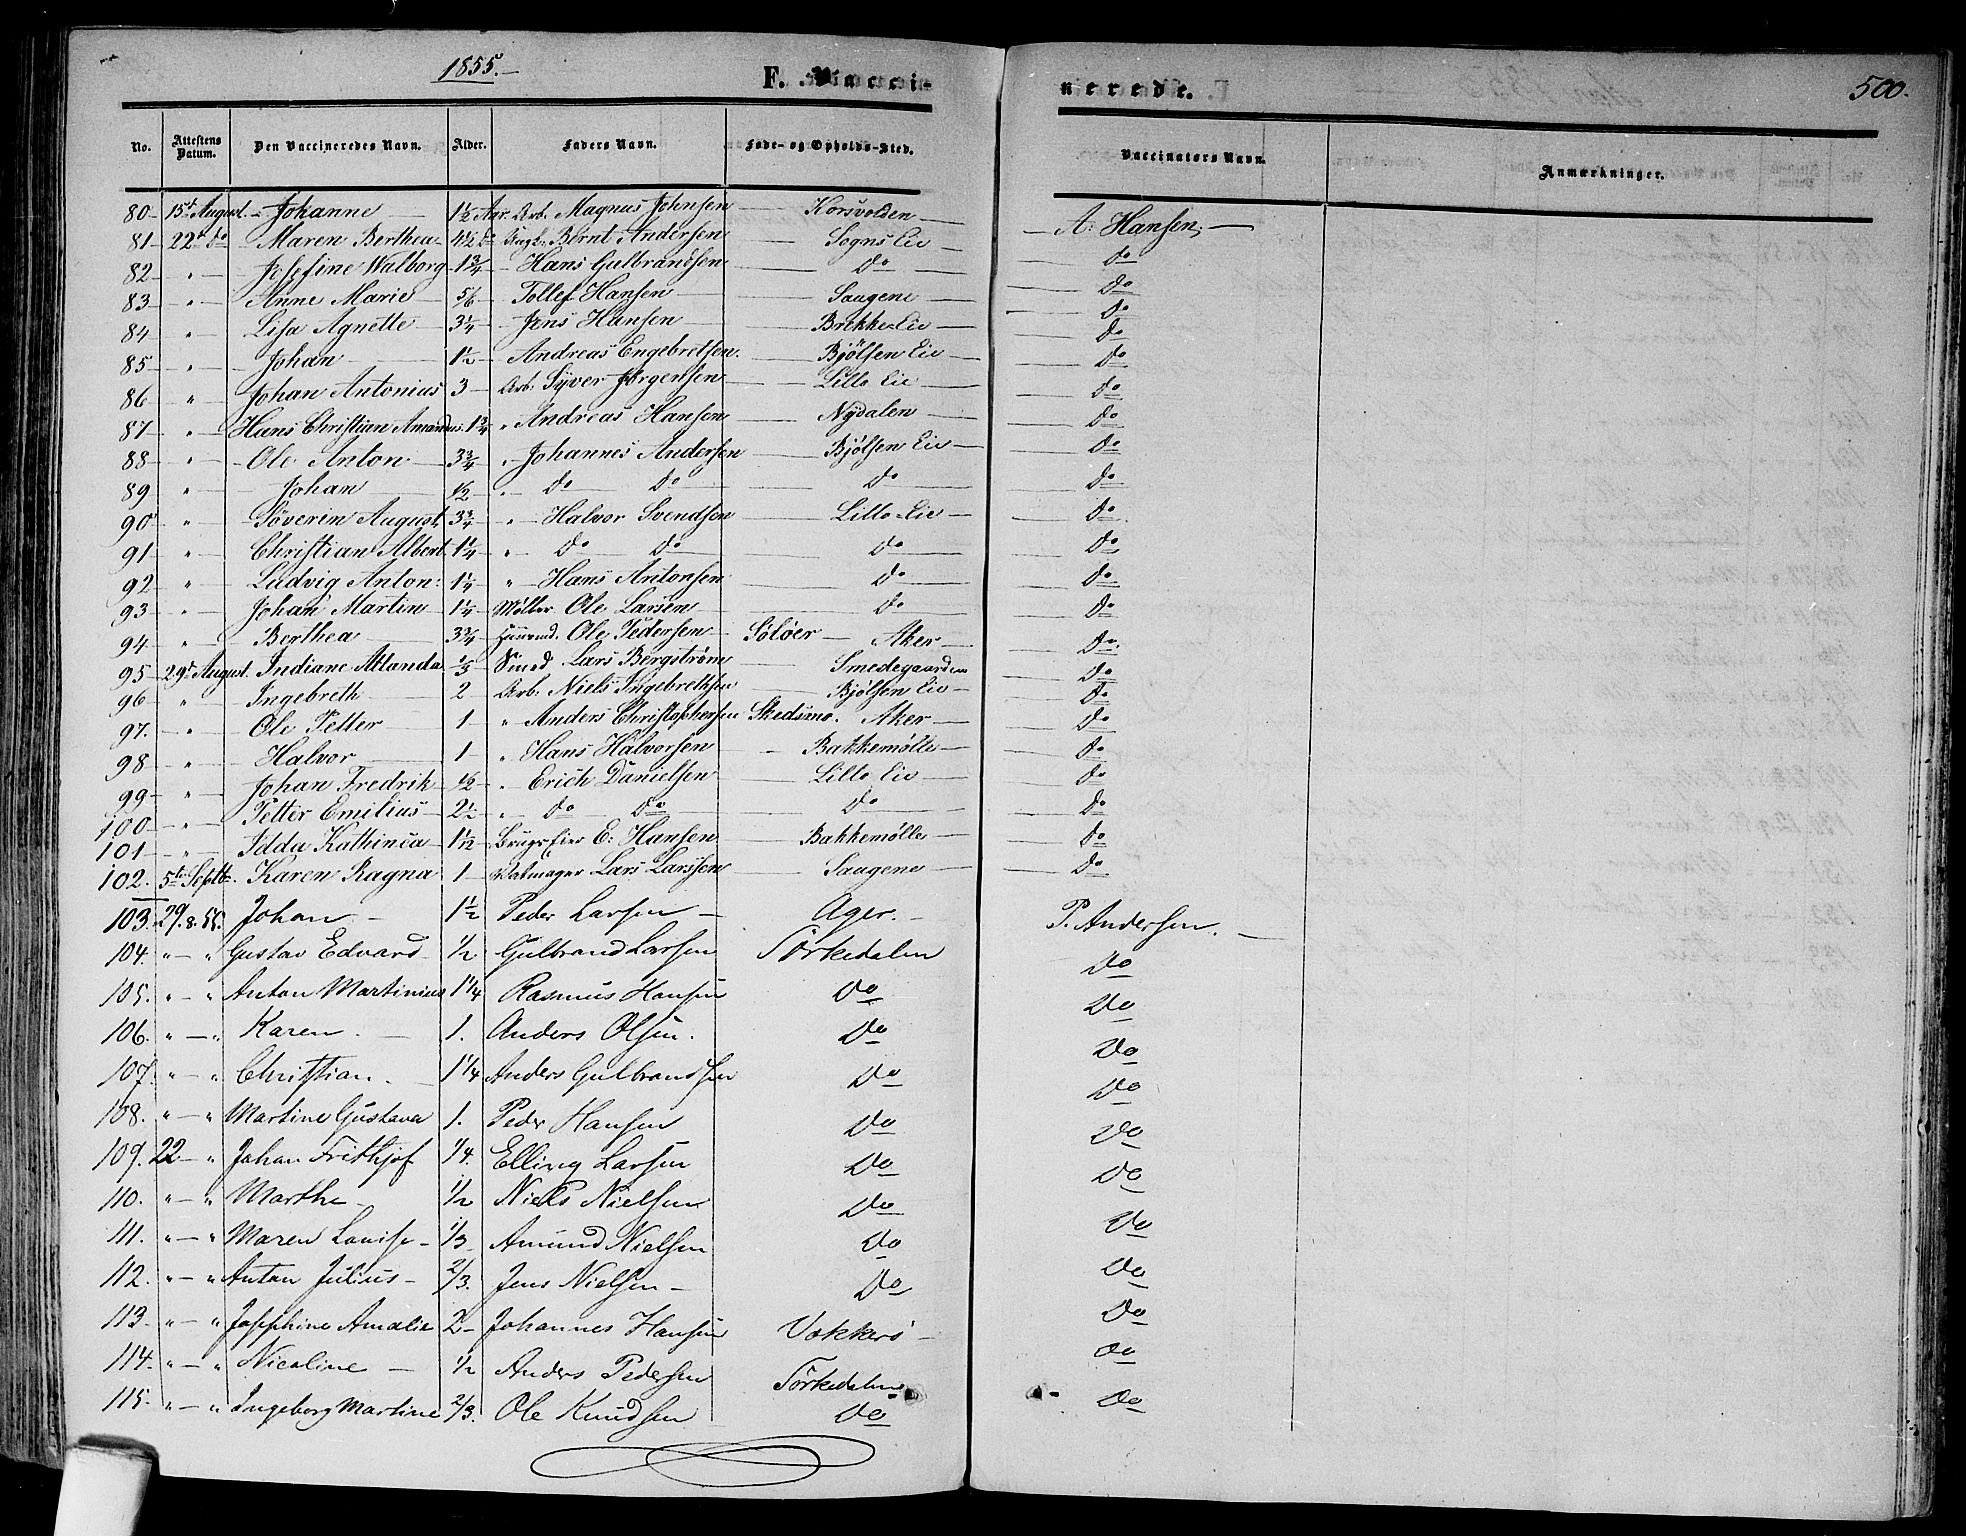 1855.–
F. Vacci-
nerede.
500.
No. Attestens Datum. Den Vaccineredes Navn. Alder. Faders Navn. Føde- og Opholds-Sted. Vaccinators Navn. Anmærkninger.
80 – 15de August. – Johanne – 1½ Aar. Arb. Magnus Johnsen – Korsvolden – A: Hansen; –
81 – 22de do Maren Berthea – 4½ do Bernt Andersen – Sogns Eie – do
82 – " – Josefine Walborg – 1¾ – Hans Gulbrandsen – do – do
83 – " – Anne Marie – 5/6 – Tollef Hansen – Saugene – do
84 – " – Lisa Agnette – 3¼ – Jens Hansen – Brekke-Eie – do
85 – " – Johan – 1½ – Andreas Engebretsen. – Bjölsen Eie – do
86 – " – Johan Antonius 3 – Arb. Syver Jørgensen – Lillo Eie – do
87 – " – Hans Christian Amandus. 1¾ " Andreas Hansen – Nydalen – do
88 – " – Ole Anton – 3¾ " Johannes Andersen – Bjølsen Eie – do
89 – " – Johan – ½ " do do – do – do
90 – " – Söverin August, 3¾ – " – Halvor Svendsen – Lillo-Eie – do
91 – " – Christian Albert 1¼ – " do do – do – do
92 – " – Ludvig Anton: 1¼ – " – Hans Antonsen – do – do
93 – " – Johan Martin – 1¼ – Møller Ole Larsen – do – do
94 – " – Berthea – 3¾ – Huusmd. Ole Pedersen – Solöer – Aker – do
95 – 29de August. Indiane Atlanda. – Smed Lars Bergstrøm – Smedegaarden – do
96 – " – Ingebreth – 2 – Arb. Niels Ingebrethsen – Bjølsen Eie – do
97. – " – Ole Petter – 1 – " Anders Christophersen Skedsmo. Aker – do
98 – " – Halvor – 1 – " Hans Halvorsen – Bakkemølle – do
99 – " – Johan Fredrik – ½ – " Erich Danielsen – Lillo Eie – do
100 – " – Petter Emilius – 2½ – " do do – do – do
101 – " – Idda Kathinca – 1 1/12 – Brugseier E: Hansen – Bakkemølle – do
102. 5te Septbr. Karen Ragna 1 – Lars Larssen – Saugene – do
103. 29.8.55. Johan. – 1½ Peder Larsen – Ager. – P. Andersen. –
104. " – " Gustav Edvard – ½ Gulbrand Larsen Sörkedalen do
105. " – " Anton Martinius 1¼ Rasmus Hansen do do
106. " – " Karen. – 1. Anders Olsen. do do
107. " – " Christian. – 1¼ Anders Gulbrandsen do do
108. " – " Martine Gustava 1. Peder Hansen do do
109. 22 – " Johan Frithjof ¼. Elling Larsen do do
110. " – " Marthe – ½ Niels Nielsen do do
111. " – " Maren Louise – 1/3 Amund Nielsen do do
112. " – " Anton Julius – 2/3. Jens Nielsen – do do
113. " – " Josephine Amalie 2 – Johannes Hansen Vækkerö – do
114. " – " Nicoline – ½ Anders Pedersen Sörkedalen do
115. " – " Ingeborg Martine 2/3. Ole Knudsen do do